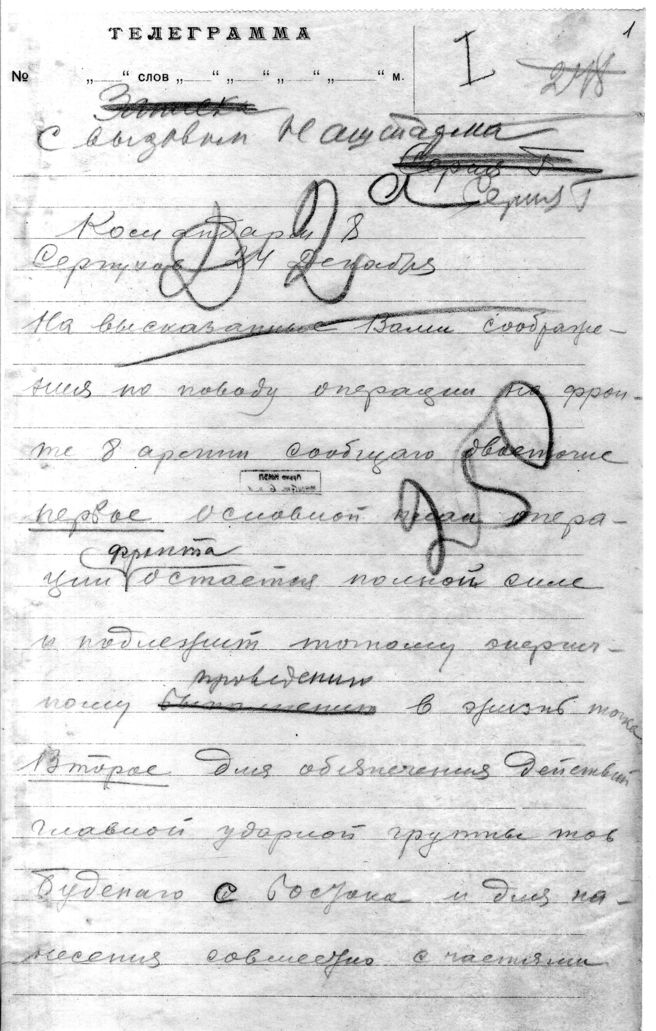 1
ТЕЛЕГРАММА
I
248
№ „ “ слов „ “ „ “ „ “ „ “ м.
Записка
С вызовом Наштарма
Серия Г
Серия Г
Командарм 8
Серпухов 24 Декабря
На высказанные Вами соображе-
ния по поводу операции на фрон-
те 8 армии сообщаю двоеточие
первое основной план опера-
фронта
ции остается полной силе
и подлежит точному энергич-
проведению
ному выполнению в жизнь точка
Второе для обезпечения Действий
главной ударной группы тов
Буденаго с Востока и для на-
несения совместно с частями